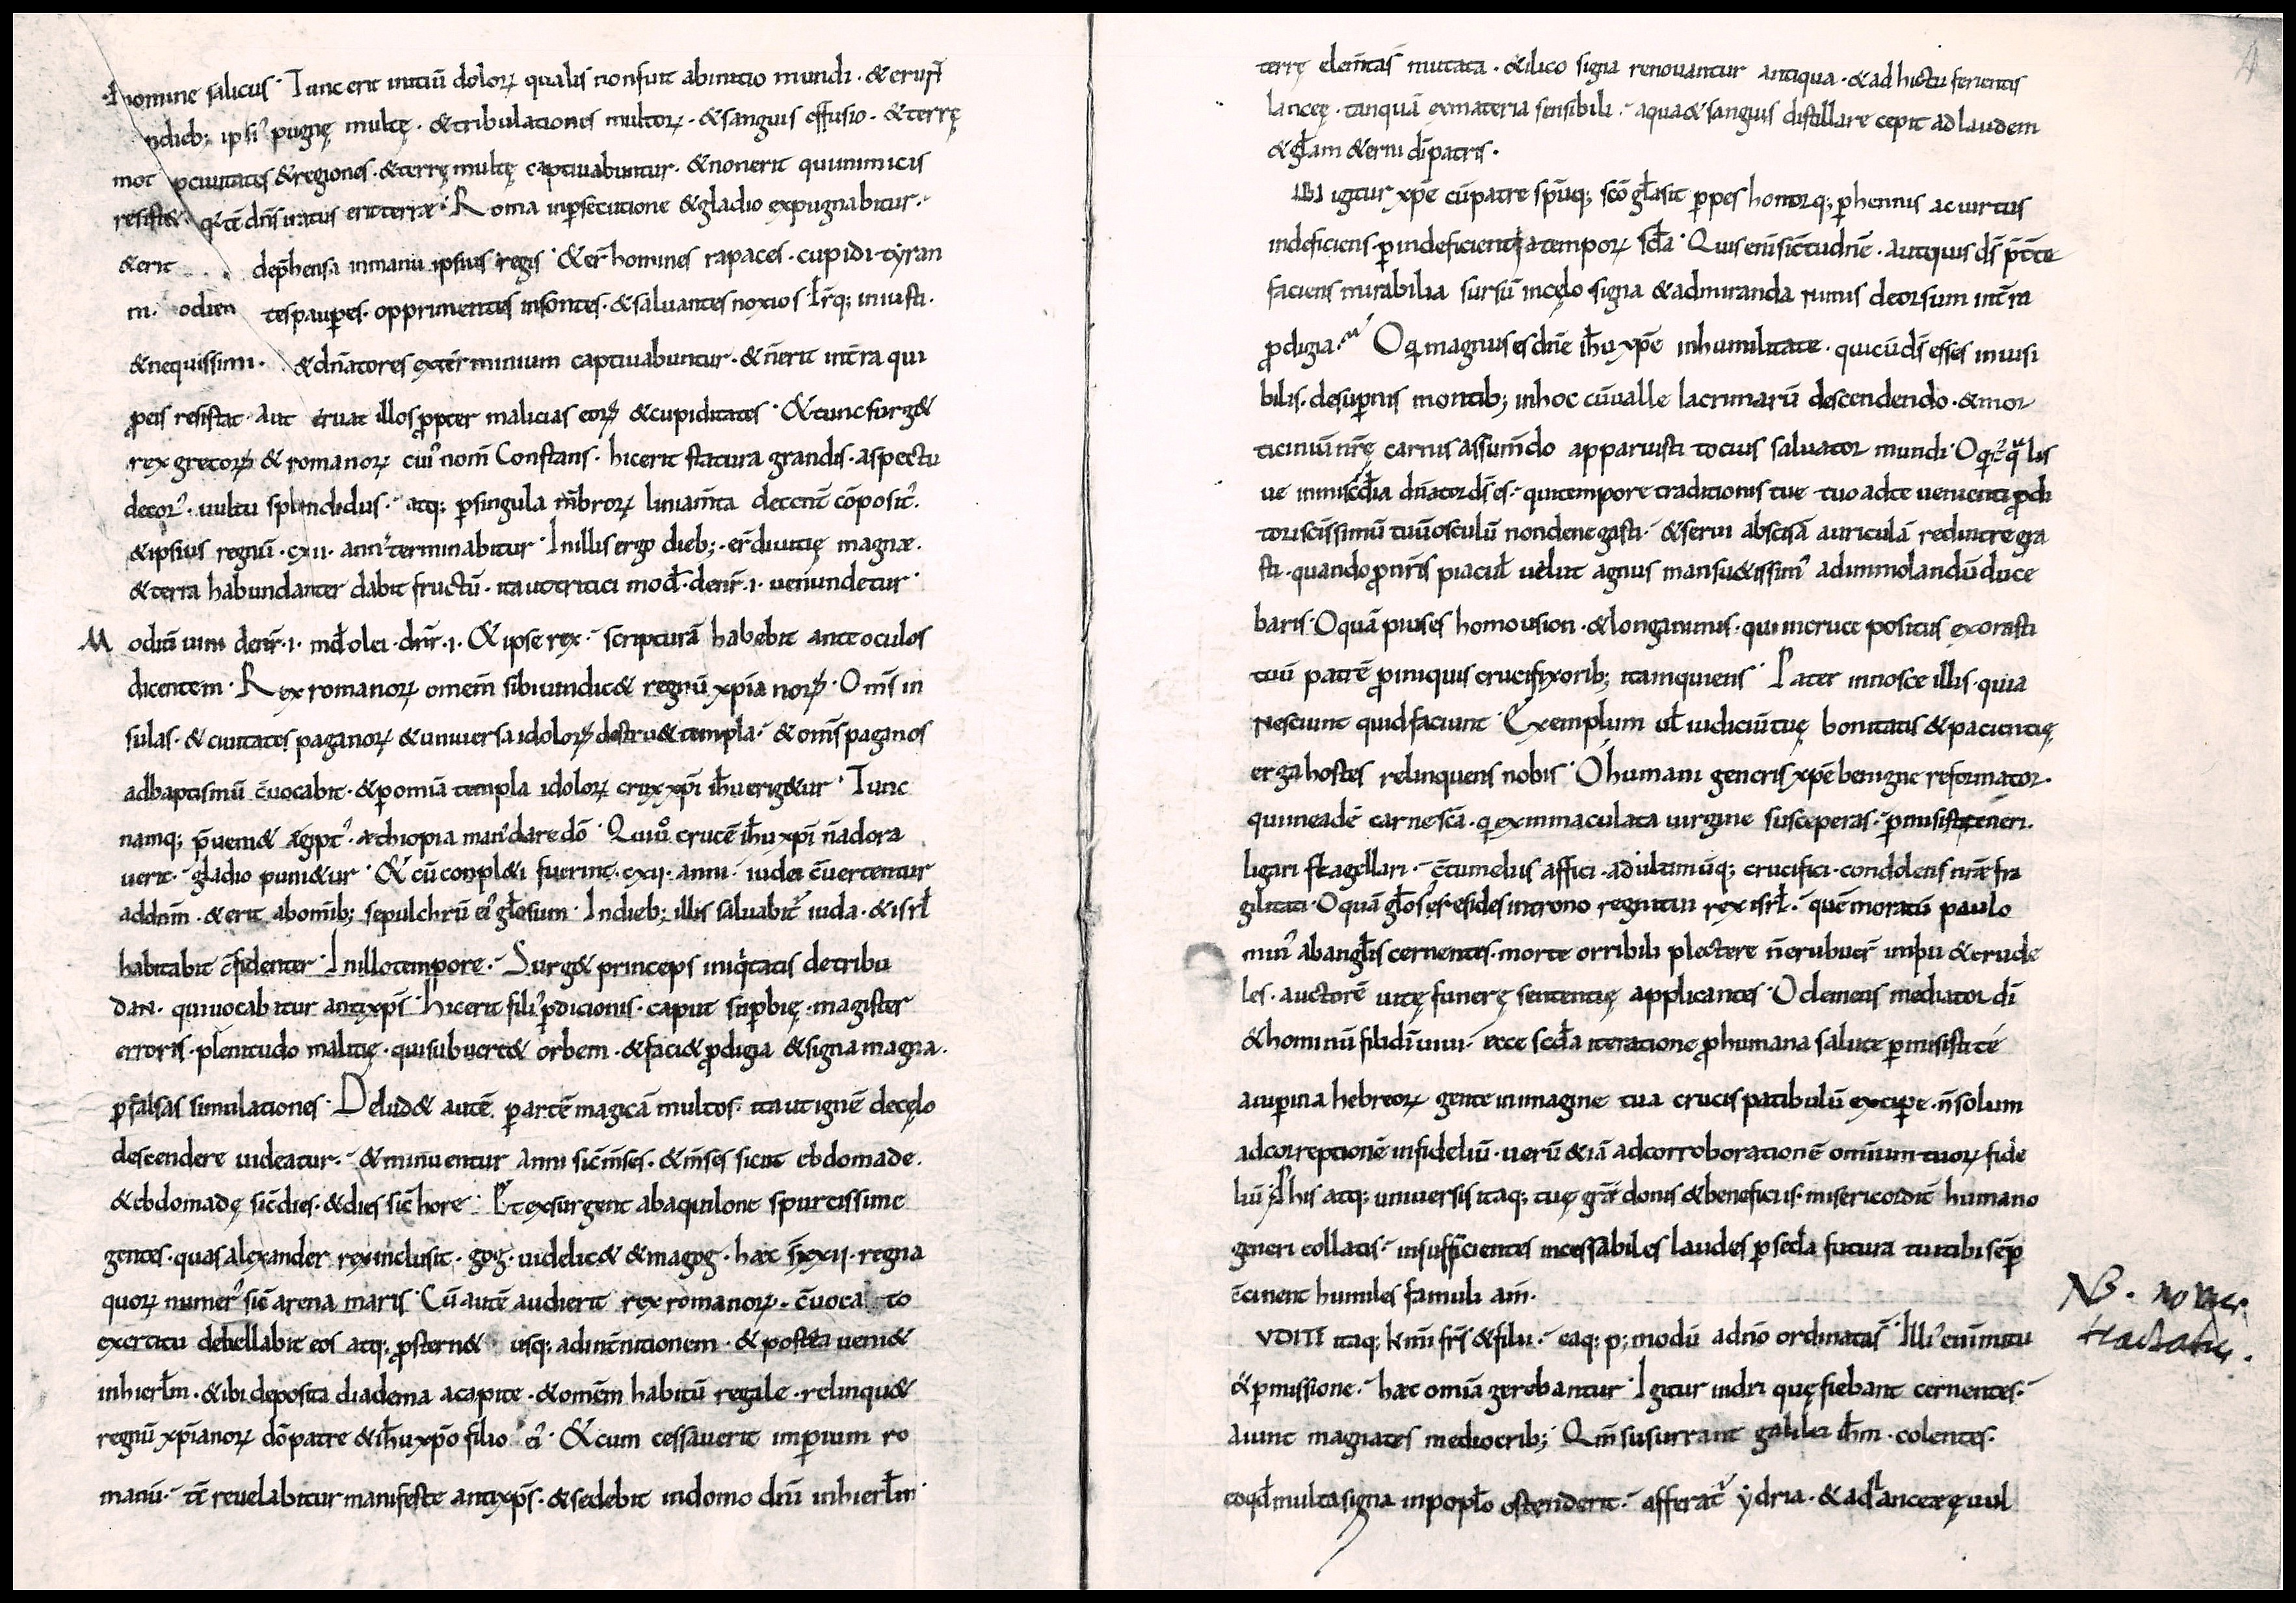 nomine salicus · Tunc erit initiū dolorꝝ qualis nonfuit abinitio mundi · & erunt
ndieb; ipsiꝰ pugnę multę · &tribulationes multorꝝ · &sanguis effusio · &terrę
mot pciuitates &regiones · &terrę multę captiuabuntur · &nonerit quiinimicis
resist& · q̇tē dn̄s iratus erit terræ · Roma inp̱secutione &gladio expugnabitur ·
&erit dep̄hensa inmanu ipsius regis · &er̄ homines rapaces · cupidi · tyran
ni · odien tespaup̱es · opprimentes insontes · &saluantes noxios · Ir̄q; iniusti ·
&nequissimi · &dn̄atores exter̄minium captiuabuntur · &n̄erit int̄ra qui
ꝓeis resistat · aut eruat illos ꝓpter malicias eorꝝ &cupiditates · &tunc surg&
rex grecorꝝ & romanorꝝ cuiꝰ nom̄ Constans · hicerit statura grandis · aspectu
decorꝰ · uultu splendidus · atq; ꝑsingula m̄brorꝝ liniam̄ta decent̄ cōpositꝰ ·
&ipsius regnū · cxii · annꝰ terminabitur · Inillis ergo dieb; · er̄ diuitię magnæ ·
&terra habundanter dabit fructū · ita ut tritici mod̄ · denr̄ · i · uenundetur ·
M odiū uini denr̄ · i · md̄ olei · dnr̄ · i · &ipse rex · scripturā habebit ante oculos
dicentem · Rex romanorꝝ omem̄ sibi uindic& regnū xp̄ianorꝝ · Om̄s in
sulas · & ciuitates paganorꝝ &uniuersa idolorꝝ destru& templa · & om̄s paganos
adbaptismū c̄uocabit · &ꝑomīa templa idolorꝝ crux xp̄i ih̄u erig&ur · Tunc
namq; p̄ueni& ægiptꝰ · æthiopia manꝰ dare dō · Quiů crucē ih̄u xp̄i n̄adora
uerit · gladio puni&ur · & cū conpl&i fuerint · cxii · anni · iudei c̄uertentur
addnm̄ · &erit abomīb; sepulchrū eiꝰ gl̄osum · Indieb; illis saluabitᷣ iuda · &isrł
habitabit c̄fidenter · Inillo tempore · Surg& princeps iniq̇tatis de tribu
dan · qui uocabitur antixp̄s · hicerit filiꝰ ꝑdicionis · caput suꝑbię · magister
erroris · plenitudo malitię · qui subuert& orbem · &faci& ꝓdigia &signa magna ·
ꝑfalsas simulationes · Delud& autē ꝑ artē magicā multos · ita ut ignē decęlo
descendere uideatur · &minuentur anni sic̄ m̄ses · &m̄ses sicut ebdomade ·
&ebdomadę sic̄ dies · &dies sic̄ hore · Et exsurgent abaquilone spurcissime
gentes · quas alexander rex inclusit · gog · uidelic& &magog · hæc s̄ xxii · regna
quorꝝ numerꝰ sic̄ arena maris · Cū autē audierit rex romanorꝝ · c̄uoca to
exercitu debellabit eos atq; ꝓstern& usq; adint̄nitionem · & postea ueni&
inhierłm · &ibi deposita diadema acapite · &omem̄ habitū regale · relinqu&
regnū xp̄ianorꝝ dō patre &ih̄u xp̄o filio eiꝰ · &cum cessauerit imꝑium ro
manū · tc̄ reuelabitur manifeste antixp̄s · &sedebit indomo dnī inhierłm ·
terrę elem̄tas̄ mutata · &ilico signa renouantur antiqua · &ad hictu ferientis
lanceę · tanquā exmateria sensibili · aqua&sanguis distillare cepit adlaudem
&gl̄am &erni dī patris ·
IBI igitur xp̄e cū patre sp̄uq; scō gl̄a sit ꝑpes honorq; ꝑhennis ac uirtus
indeficiens · ꝑ indeficientia temporꝝ scl̄a · Quis enī sic̄ tu dn̄e · aut quis ds̄ p̄t̄ te
faciens mirabilia sursū incęlo signa &admiranda rursus deorsum int̄ra
ꝓdigia · O q̄ magnus es dn̄e ih̄u xp̄e inhumilitate · qui cū ds̄ esses inuisi
bilis · desuꝑnis montib; inhoc cūualle lacrimarū descendendo · &mor
ticinūā nr̄ę carnis assum̄do apparuisti tocius saluator mundi · O q̄ & qualis
ue inmisc̄dīa dn̄ator ds̄ es · qui tempore traditionis tue tuo ad te uenienti ꝓdi
toris cīssimū tuūosculū nondenegasti · &serui abscisā auriculā redintegra
sti · quando ꝓ nr̄īs piacuł uelut agnus mansu&issimꝰ adimmolandū duce
baris · O quā pius es homousion · &longanimis · qui incruce positus exorasti
tuū patrē ꝓiniquis crucifixorib; itainquiens · Pater innosce illis · quia
nesciunt quid faciunt · Exemplum uł iudiciū tuę bonitatis &pacientię
erga hostes relinquens nobis · O humani generis xp̄e benigne reformator ·
qui ineadē carne scā · q̄ exinmaculata uirgine susceperas · ꝑmisisti teneri ·
ligari flagellari · c̄tumeliis affici · ad ultimūq; crucifici · condolens nr̄æ fra
gilitati · O quā gl̄osꝰ es · residesintrono regni tui rex isrł · quē moratū paulo
minꝰ abangl̄is cernentes · morte orribili plectere n̄erubuer̄ impii &crude
les · auctorē uitę funerę sententię applicantes · O clemens mediator dī
&hominū fili dī uiui · ecce scd̄a iteratione ꝓ humana salute ꝑmisisti te
auiꝑina hebreorꝝ gente in imagine tua crucis patibulū exciꝑe · n̄ solum
ad correptionē infideliū · uerū &iā ad corroborationē omīum tuorꝝ fide
liū · ꝓ his atq; uniuersis itaq; tuę grāe donis &beneficiis · misericordit̄ humano
generi collatis · insufficientes incessabiles laudes ꝑ secl̄a futura tui tibi sēꝑ
c̄cinent humiles famuli am̄ ·
VDITE itaq; kmī frs̄ &filii · eaq; p; modū adnō ordinatas̄ · Illiꝰ enim nutu
&ꝑmissione · hæc omīa gerebantur · Igitur iudei quę fiebant cernentes ·
aiunt magnates mediocrib; Qm̄ susurrant galilei ih̄m · colentes ·
eoqd̄ multa signa inpopl̄o ostenderit · afferatᷣ ydria · &ad lanceæę uul
NB. novus
tractatus.